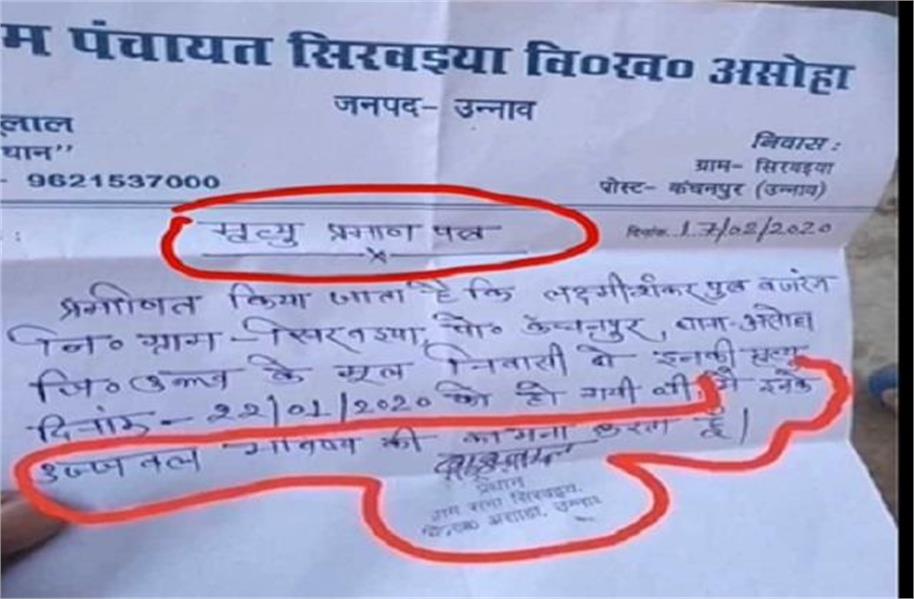 म पंचायत सिरवइया वि०ख० असोहा
जनपद- उन्नाव
लाल
धान”
- 9621537000
निवास :
ग्राम- सिरवइया
पोस्ट- कंचनपुर (उन्नाव)
:
दिनांक 17/02/2020
मृत्यु प्रमाण पत्र
प्रमाणित किया जाता है कि लक्ष्मीशंकर पुत्र बजरंग
नि० ग्राम - सिरवइया, पो० कंचनपुर, थाना-असोहा
जि० उन्नाव के मूल निवासी थे इनकी मृत्यु
दिनांक - 22/01/2020 को हो गयी थी, मै इनके
उज्जवल भविष्य की कामना करता हूँ।
प्रधान
ग्राम सभा सिरवइया,
वि०ख० असोहा, उन्नाव